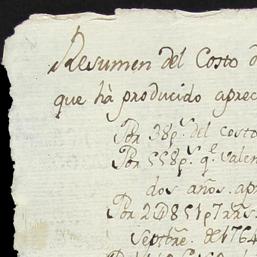 Resumen del Costo d
que hà producido aprec
Por 38p.s del costo
Por 558p.s q.e valen
dos años. apr
Por 2U851p7rr.s
Septbre. de 1764